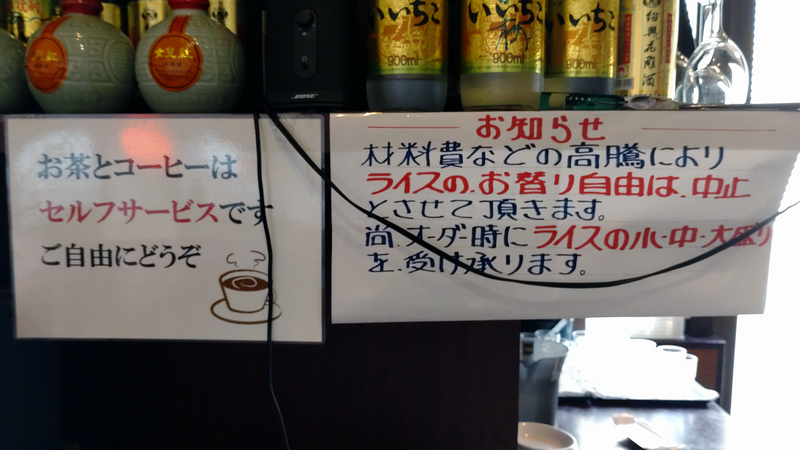 いいちこ
900ml
いいちこ
900ml
900ml
紹興花雕酒
BOSE
お茶とコーヒーは
セルフサービスです
ご自由にどうぞ
お知らせ
材料費などの高騰により
ライスの.お替り自由は.中止
とさせて頂きます。
尚.オーダー時にライスの小・中・大盛り
を.受け承ります。